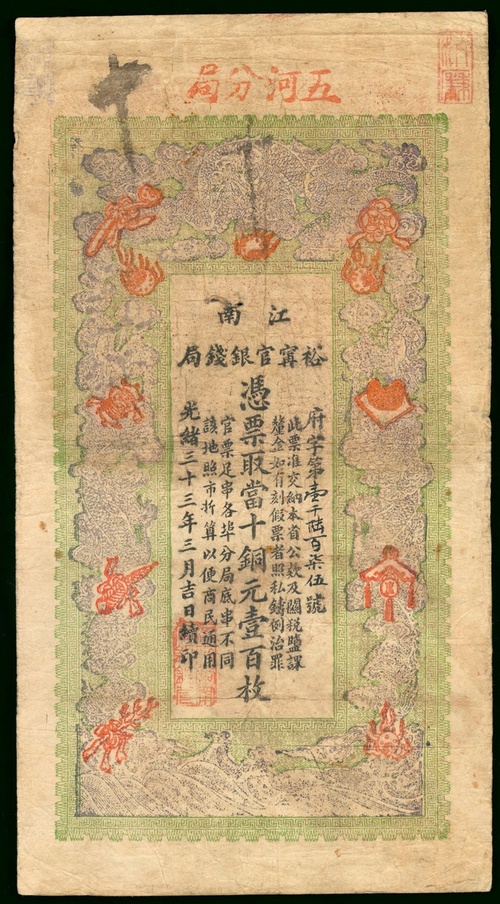 五河分局
江南
裕寧官銀錢局
府字第壹千陸百柒伍號
此票准交納本省公款及關稅鹽課
釐金如有刻假票者照私鑄例治罪
憑票取當十銅元壹百枚
官票足串各埠分局底串不同
該地照市折算以便商民通用
光緒三十三年三月吉日續印